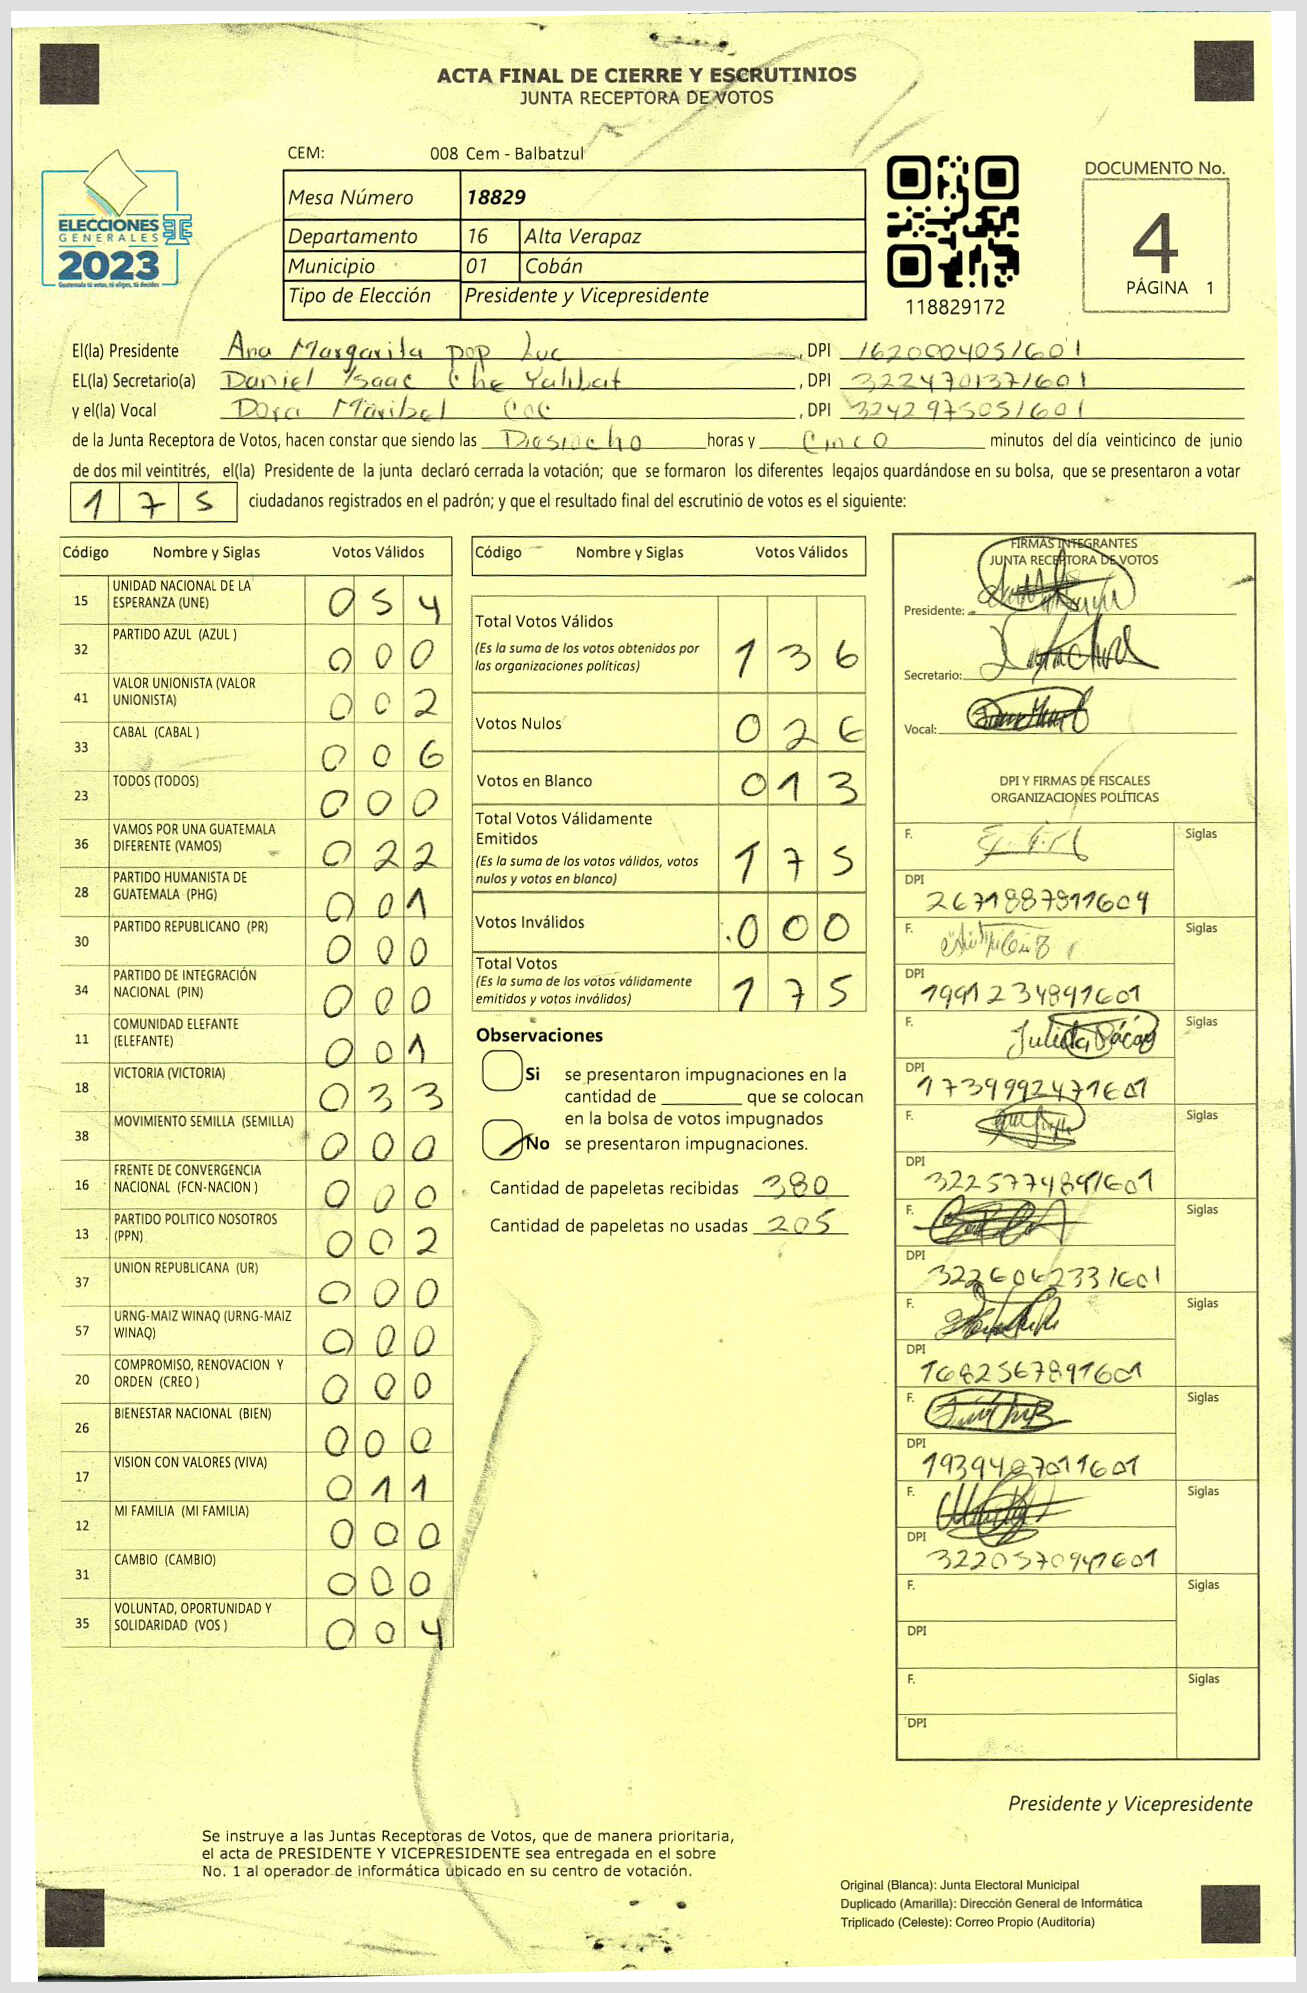 ACTA FINAL DE CIERRE Y ESCRUTINIOS
JUNTA RECEPTORA DE VOTOS
CEM: 008 Cem - Balbatzul
ELECCIONES
GENERALES
2023
Guatemala tú votas, tú eliges, tú decides
Mesa Número 18829
Departamento 16 Alta Verapaz
Municipio 01 Cobán
Tipo de Elección Presidente y Vicepresidente
118829172
DOCUMENTO No.
4
PÁGINA 1
El(la) Presidente Ana Margarita pop Luc , DPI 1620004051601
EL(la) Secretario(a) Daniel Isaac Che Yalibat , DPI 3224701371601
y el(la) Vocal Dora Maribel Coc , DPI 3242975051601
de la Junta Receptora de Votos, hacen constar que siendo las Diesiocho horas y Cinco minutos del día veinticinco de junio
de dos mil veintitrés, el(la) Presidente de la junta declaró cerrada la votación; que se formaron los diferentes legajos guardándose en su bolsa, que se presentaron a votar
1 7 5 ciudadanos registrados en el padrón; y que el resultado final del escrutinio de votos es el siguiente:
Código Nombre y Siglas Votos Válidos
15 UNIDAD NACIONAL DE LA ESPERANZA (UNE) 0 5 4
32 PARTIDO AZUL (AZUL ) 0 0 0
41 VALOR UNIONISTA (VALOR UNIONISTA) 0 0 2
33 CABAL (CABAL ) 0 0 6
23 TODOS (TODOS) 0 0 0
36 VAMOS POR UNA GUATEMALA DIFERENTE (VAMOS) 0 2 2
28 PARTIDO HUMANISTA DE GUATEMALA (PHG) 0 0 1
30 PARTIDO REPUBLICANO (PR) 0 0 0
34 PARTIDO DE INTEGRACIÓN NACIONAL (PIN) 0 0 0
11 COMUNIDAD ELEFANTE (ELEFANTE) 0 0 1
18 VICTORIA (VICTORIA) 0 3 3
38 MOVIMIENTO SEMILLA (SEMILLA) 0 0 0
16 FRENTE DE CONVERGENCIA NACIONAL (FCN-NACION ) 0 0 0
13 PARTIDO POLITICO NOSOTROS (PPN) 0 0 2
37 UNION REPUBLICANA (UR) 0 0 0
57 URNG-MAIZ WINAQ (URNG-MAIZ WINAQ) 0 0 0
20 COMPROMISO, RENOVACION Y ORDEN (CREO ) 0 0 0
26 BIENESTAR NACIONAL (BIEN) 0 0 0
17 VISION CON VALORES (VIVA) 0 1 1
12 MI FAMILIA (MI FAMILIA) 0 0 0
31 CAMBIO (CAMBIO) 0 0 0
35 VOLUNTAD, OPORTUNIDAD Y SOLIDARIDAD (VOS ) 0 0 4
Código Nombre y Siglas Votos Válidos
Total Votos Válidos
(Es la suma de los votos obtenidos por las organizaciones políticas) 1 3 6
Votos Nulos 0 2 6
Votos en Blanco 0 1 3
Total Votos Válidamente Emitidos
(Es la suma de los votos válidos, votos nulos y votos en blanco) 1 7 5
Votos Inválidos 0 0 0
Total Votos
(Es la suma de los votos válidamente emitidos y votos inválidos) 1 7 5
Observaciones
Si se presentaron impugnaciones en la
cantidad de ________ que se colocan
en la bolsa de votos impugnados
No se presentaron impugnaciones.
Cantidad de papeletas recibidas 380
Cantidad de papeletas no usadas 205
FIRMAS INTEGRANTES
JUNTA RECEPTORA DE VOTOS
Presidente:
Secretario:
Vocal:
DPI Y FIRMAS DE FISCALES
ORGANIZACIONES POLÍTICAS
F. Siglas
DPI 2671887811609
F. Siglas
DPI 1991234891601
F. Julieta Siglas
DPI 1739992471601
F. Siglas
DPI 3225774891601
F. Siglas
DPI 3226062331601
F. Siglas
DPI 1682567891601
F. Siglas
DPI 1939487011601
F. Siglas
DPI 3220570941601
F. Siglas
DPI
F. Siglas
DPI
Presidente y Vicepresidente
Se instruye a las Juntas Receptoras de Votos, que de manera prioritaria,
el acta de PRESIDENTE Y VICEPRESIDENTE sea entregada en el sobre
No. 1 al operador de informática ubicado en su centro de votación.
Original (Blanca): Junta Electoral Municipal
Duplicado (Amarilla): Dirección General de Informática
Triplicado (Celeste): Correo Propio (Auditoría)